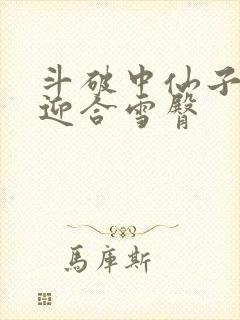 斗破中仙子
迎合雪臀
馬庫斯